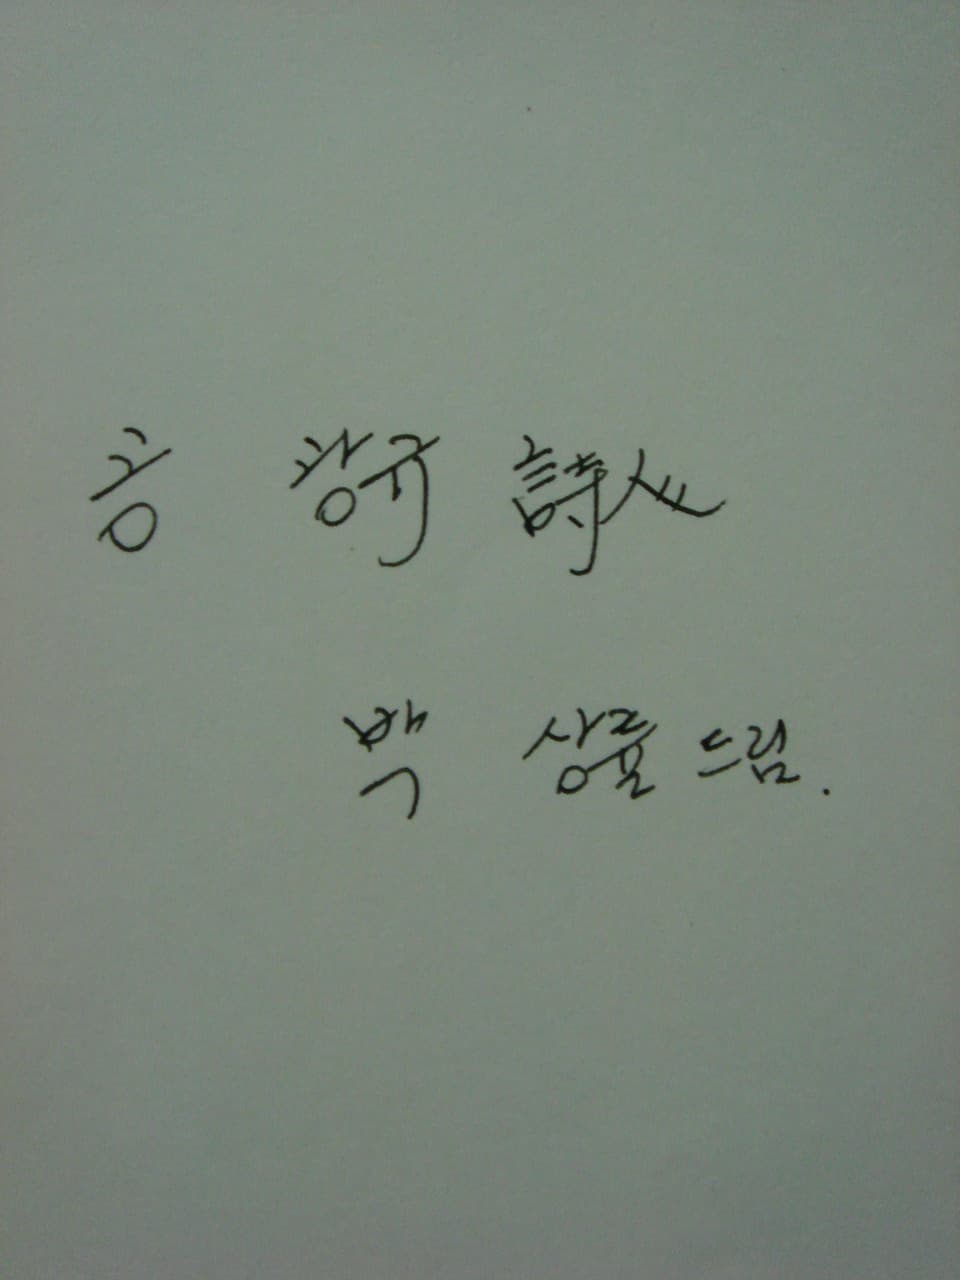 공 광규 詩人
박 상률 드림.